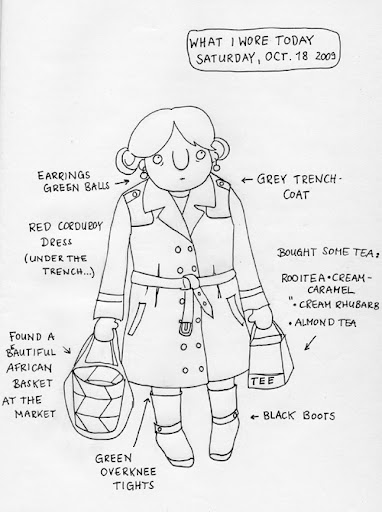 WHAT I WORE TODAY
SATURDAY, OCT. 18 2009
EARRINGS
GREEN BALLS
GREY TRENCH-
COAT
RED CORDUROY
DRESS
(UNDER THE
TRENCH...)
BOUGHT SOME TEA:
ROOITEA • CREAM-
CARAMEL
" • CREAM RHUBARB
• ALMOND TEA
FOUND A
BAUTIFUL
AFRICAN
BASKET
AT THE
MARKET
TEE
BLACK BOOTS
GREEN
OVERKNEE
TIGHTS